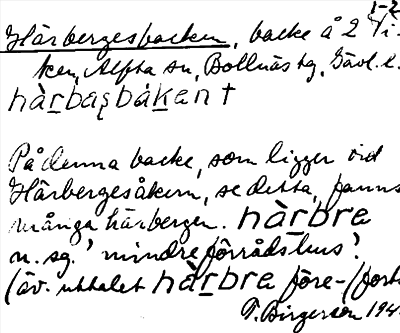 1-2
Härbergesbacken, backe å 2 Vi-
ken, Alfta sn, Bollnäs tg, Gävl. l.
hàrbasbàkant
På denna backe, som ligger vid
Härbergesåkern, se detta, fanns
många härbergen. hàrbre
n. sg. 'mindre förrådshus'.
(äv. uttalet hàrbre före-
T. Birgerson 194